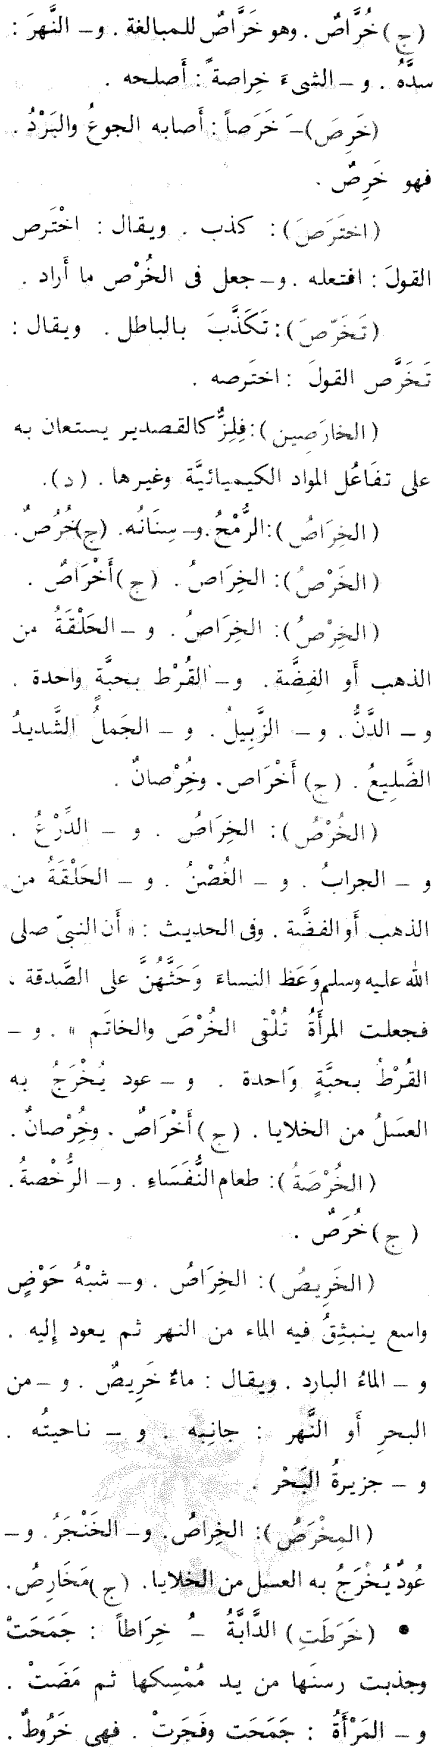 (ج) خُرَّاصٌ . وهو خَرَّاصٌ للمبالغة . و– النَّهرَ :
سدَّهُ . و – الشىءَ خِراصةً : أَصلحه .
(خَرِصَ)–َ خَرَصاً : أَصابه الجوعُ والبَرْدُ .
فهو خَرِصٌ .
(اختَرَصَ) : كذب . ويقال : اخْتَرص
القولَ : افتعله . و– جعل فى الخُرْص ما أَراد .
(تَخَرّصَ) : تَكَذَّبَ بالباطل . ويقال :
تَخَرَّص القولَ : اخترصه .
(الخارَصِين) : فِلِزٌّ كالقصدير يستعان به
على تفَاعُل المواد الكيميائيَّة وغيرها . (د) .
(الخِرَاصُ) : الرُّمْحُ . و– سِنَانُه . (ج) خُرُصٌ .
(الخَرْصُ) : الخِرَاصُ . (ج) أَخْرَاصٌ .
(الخِرْصُ) : الخِرَاصُ . و – الحَلْقَةُ من
الذهب أَو الفِضَّة . و– القُرْط بحبَّةٍ واحدة .
و – الدَّنُّ . و – الزَّبِيلُ . و – الجَملُ الشَّديدُ
الضَّلِيعُ . (ج) أَخْرَاص . وخُِرْصانٌ .
(الخُرْصُ) : الخِرَاصُ . و – الدِّرْعُ .
و – الجرابُ . و – الغُصْنُ . و – الحَلْقَةُ من
الذهب أَو الفضَّة . وفى الحديث : « أَن النبىّ صلى
الله عليه وسلم وَعَظ النساءَ وَحَثَّهُنَّ على الصَّدقة ،
فجعلت المرأَةُ تُلْقِى الخُرْصَ والخاتَم » . و –
القُرْطُ بحبَّةٍ وَاحدة . و – عود يُخْرَجُ به
العسَلُ من الخلايا . (ج) أَخْرَاصٌ . وخُِرْصانٌ .
(الخُرْصَةُ) : طعام النُّفَسَاءِ . و– الرُّخْصةُ .
(ج) خُرَصٌ .
(الخَرِيصُ) : الخِرَاصُ . و– شبْهُ حَوْضٍ
واسع ينبثِقُ فيه الماء من النهر ثم يعود إليه .
و – الماءُ البارد . ويقال : ماءٌ خَرِيصٌ . و – من
البحرِ أَو النَّهر : جانِبه . و – ناحيتُه .
و – جزيرةُ البَحْر .
(المِخْرَصُ) : الخِراصُ . و– الخَنْجَرُ . و–
عُودٌ يُخْرَجُ به العسل من الخلايا . (ج) مَخَارِصُ .
• (خَرَطَتِ) الدَّابَّةُ –ُ خِرَاطاً : جَمَحَتْ
وجذبت رسنَها من يد مُمْسِكها ثم مَضَتْ .
و – المَرْأَةُ : جَمَحَت وفَجَرتْ . فهى خَرُوطٌ .